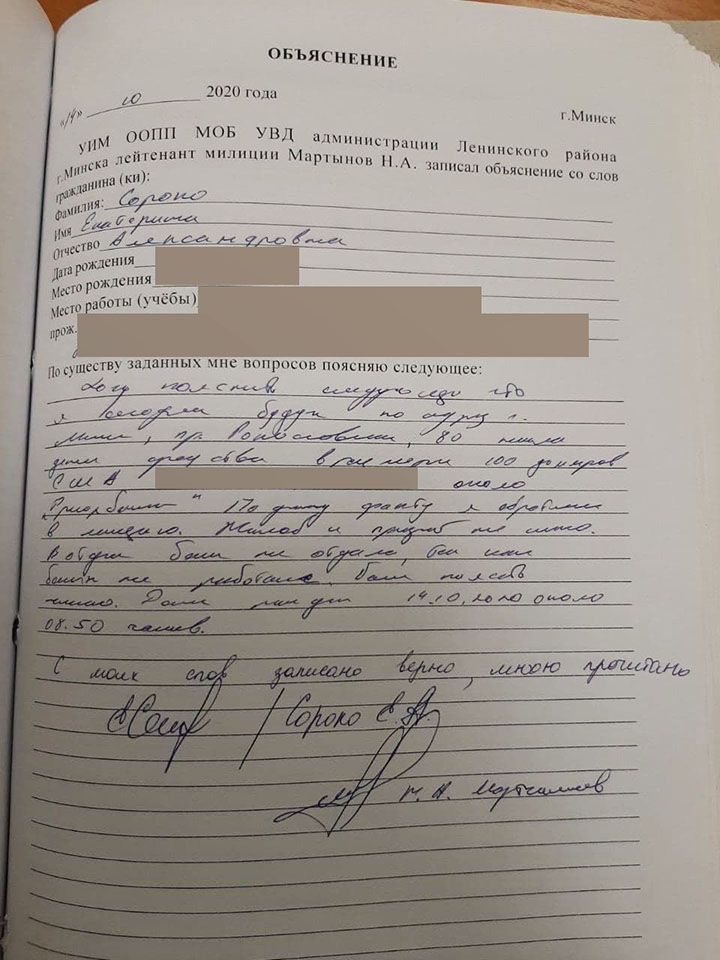 ОБЪЯСНЕНИЕ
«14» 10 2020 года
г.Минск
УИМ ООПП МОБ УВД администрации Ленинского района
г.Минска лейтенант милиции Мартынов Н.А. записал объяснение со слов
гражданина (ки):
Фамилия: Сороко
Имя Екатерина
Отчество Александровна
Дата рождения
Место рождения
Место работы (учёбы)
прож.
По существу заданных мне вопросов поясняю следующее:
Хочу пояснить следующее что
я сегодня будучи по адресу г.
Минск, пр. Рокоссовского, 80 нашла
средства в размере 100 долларов
США около
"Приорбанка" По данному факту я обратилась
в милицию. Жалоб и претензий не имею.
В отдел банка не отдала, так как
банк не работал.
14.10.2020 около
08.50 часов.
С моих слов записано верно, мною прочитано
Сороко Е.А.